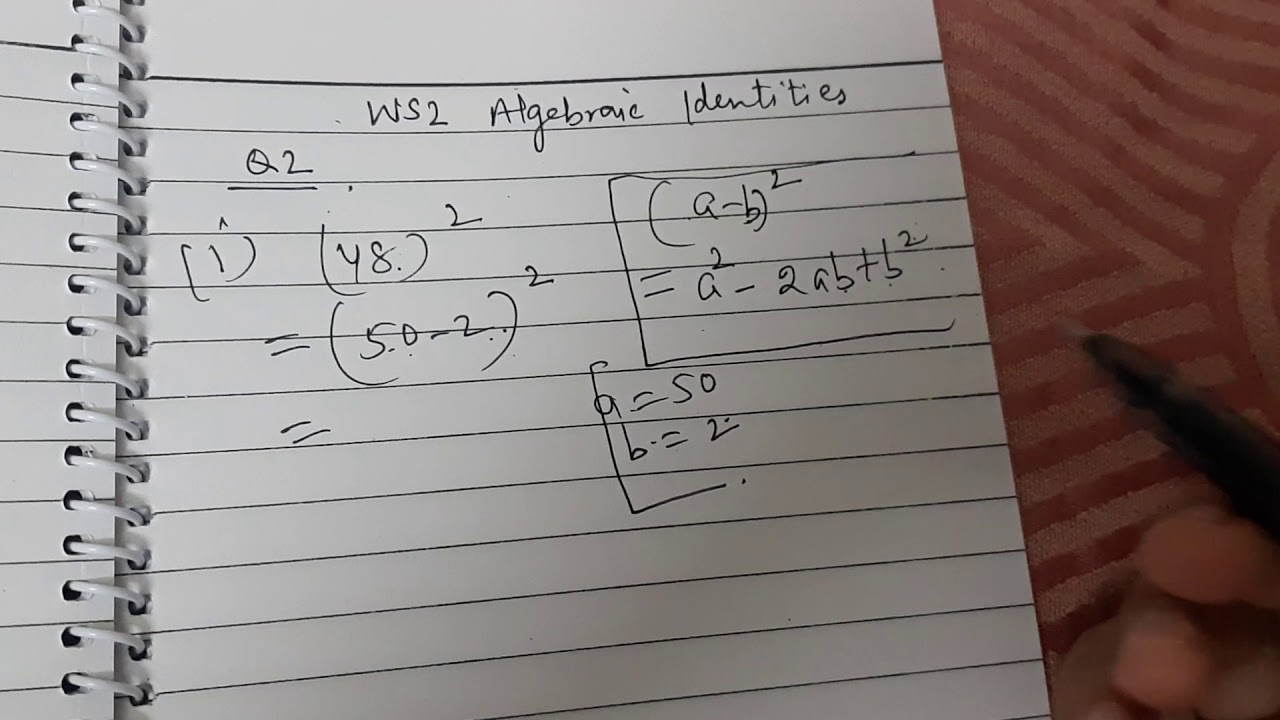 WS2 Algebraic Identities
Q2.
(i) (48.)²
= (50-2)²
=
(a-b)²
= a² - 2ab+b².
a=50
b=2